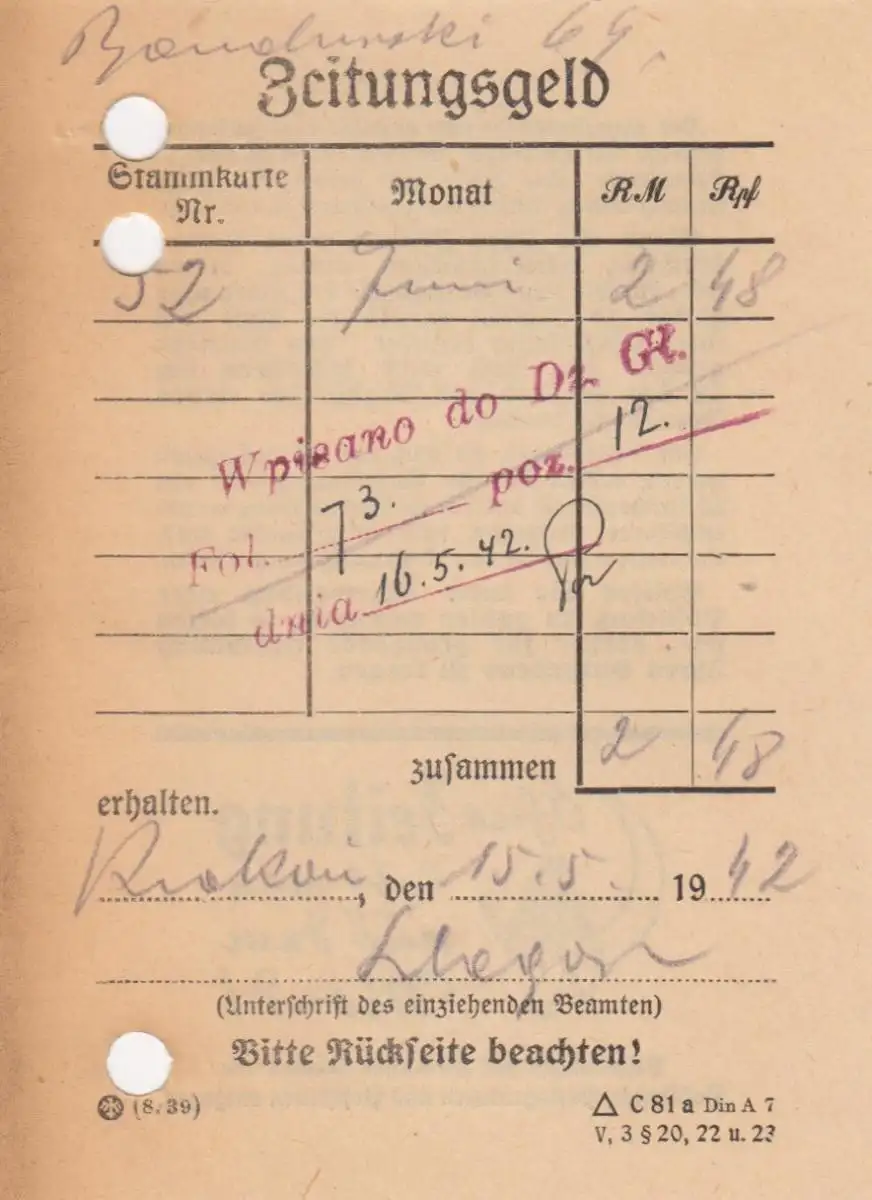 Bandurski 64.
Zeitungsgeld
Stammkarte Nr. Monat RM Rpf
52 Juni 2 48
Wpisano do Dz. Gł.
Fol. 73. poz. 12.
dnia 16.5.42.
zusammen 2 48
erhalten.
Krakau, den 15.5. 1942
(Unterschrift des einziehenden Beamten)
Bitte Rückseite beachten!
(8. 39) C 81 a Din A 7
V, 3 § 20, 22 u. 23